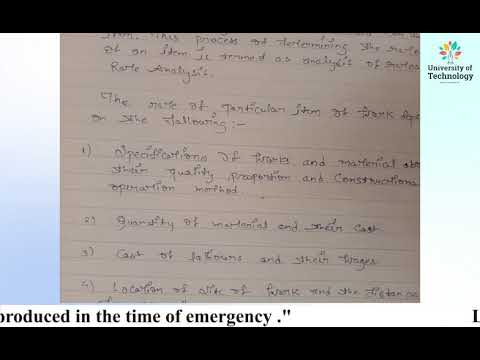 item. This process of determining the rates
of an item is termed as analysis of rates
Rate Analysis.
The rate of particular item of work dep
on the following :-
1) Specifications of works and material abo
their quality, proportion and constructiona
operation method
2) Quantity of material and their cost
3) Cost of labours and their wages
4) Location of site of work and the distan
University of
Technology
produced in the time of emergency ."
L